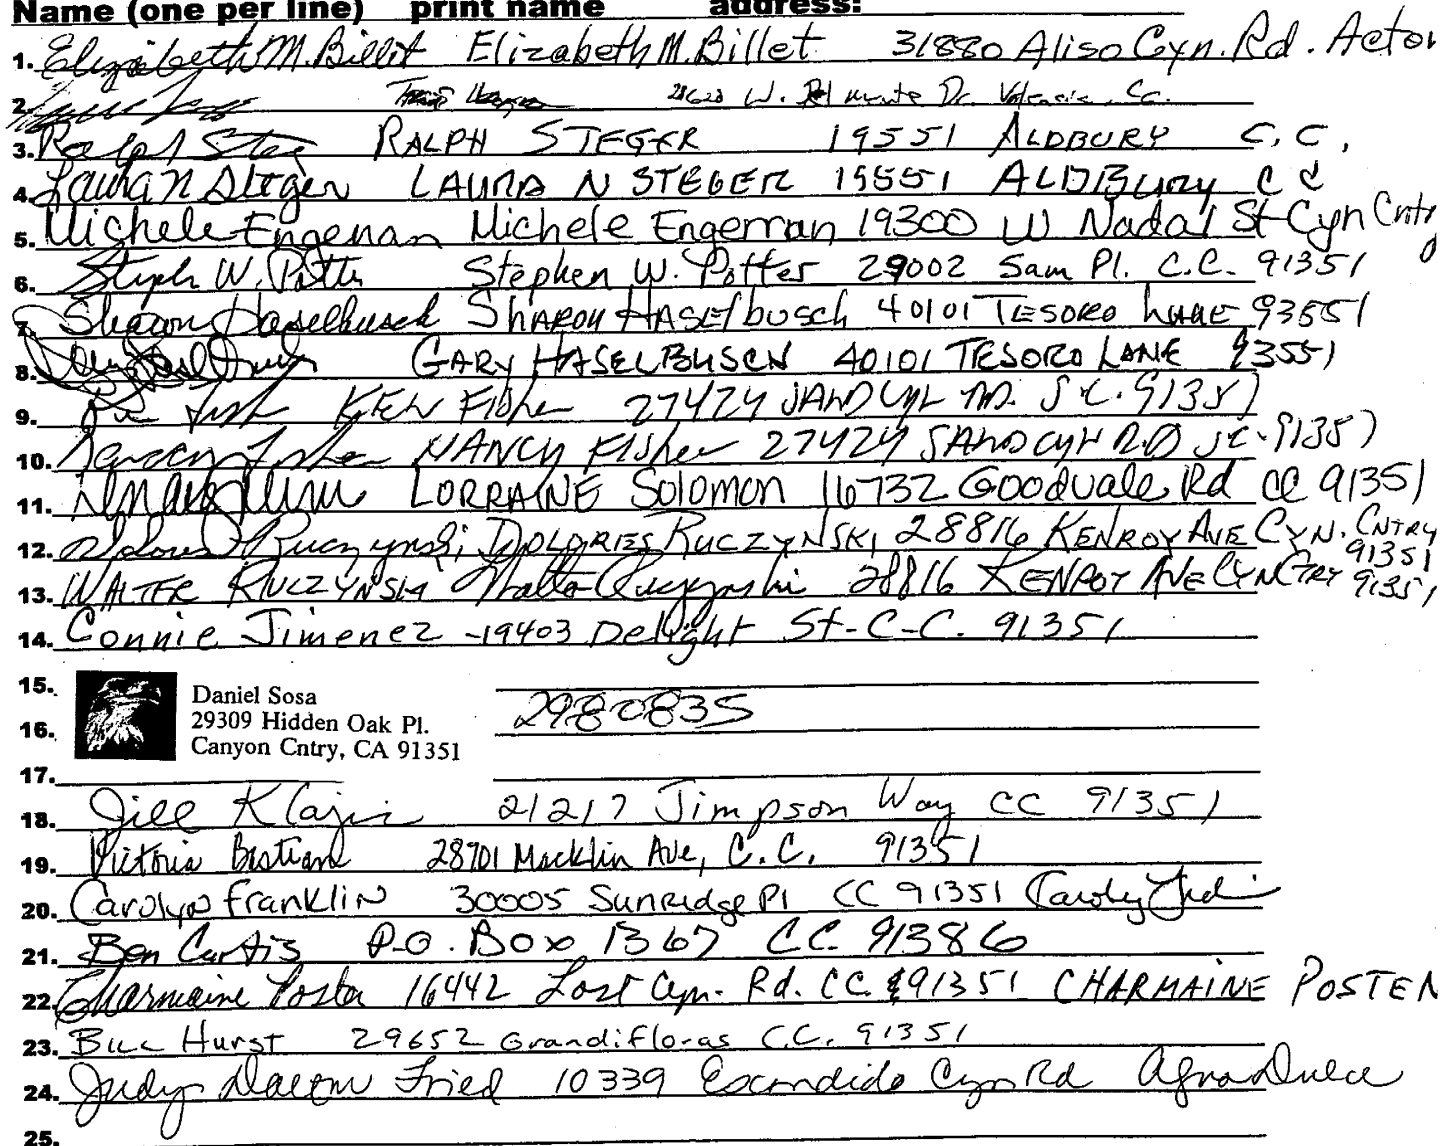 Name (one per line) print name address:
1. Elizabeth M. Billet Elizabeth M. Billet 31880 Aliso Cyn. Rd. Acton
2. W. Dr. Valencia, Ca.
3. Ralph Steger RALPH STEGER 19551 ALDBURY C.C.
4. Laura N Steger LAURA N STEGER 19551 ALDBURY CC
5. Michele Engeman Michele Engeman 19300 W Nadal St Cyn Cntry
6. Stephen W. Potter 29002 Sam Pl. C.C. 91351
7. Sharon Haselbusch SHARON HASElbusch 40101 TESORO LANE 93551
8. GARY HASELBUSCH 40101 TESORO LANE 93551
9. KEN FISher 27424 SAND CYN RD. S.C. 91351
10. Nancy Fisher NANCY FISher 27424 SAND CYN RD SC. 91351
11. LORRAINE SOLOMON 16732 GOODVALE Rd CC 91351
12. Dolores Ruczynski DOLORES RUCZYNSKI 28816 KENROY AVE CYN. CNTRY 91351
13. WALTER RUCZYNSKI Walter Ruczynski 28816 KENROY AVE CYN CTRY 91351
14. Connie Jimenez -19403 Delight St-C-C. 91351
15. Daniel Sosa
29309 Hidden Oak Pl. 2980835
16. Canyon Cntry, CA 91351
17.
18. Jill 21217 Jimpson Way CC 91351
19. Victoria 28701 Macklin Ave, C.C. 91351
20. Carolyn Franklin 30005 Sunridge Pl CC 91351
21. Ben Curtis P.O. Box 1367 CC. 91386
22. Charmaine Posten 16442 Lost Cyn. Rd. CC. 91351 CHARMAINE POSTEN
23. Bill Hurst 29652 Grandifloras C.C. 91351
24. Judy Fried 10339 Escondido Cyn Rd Agua Dulce
25.